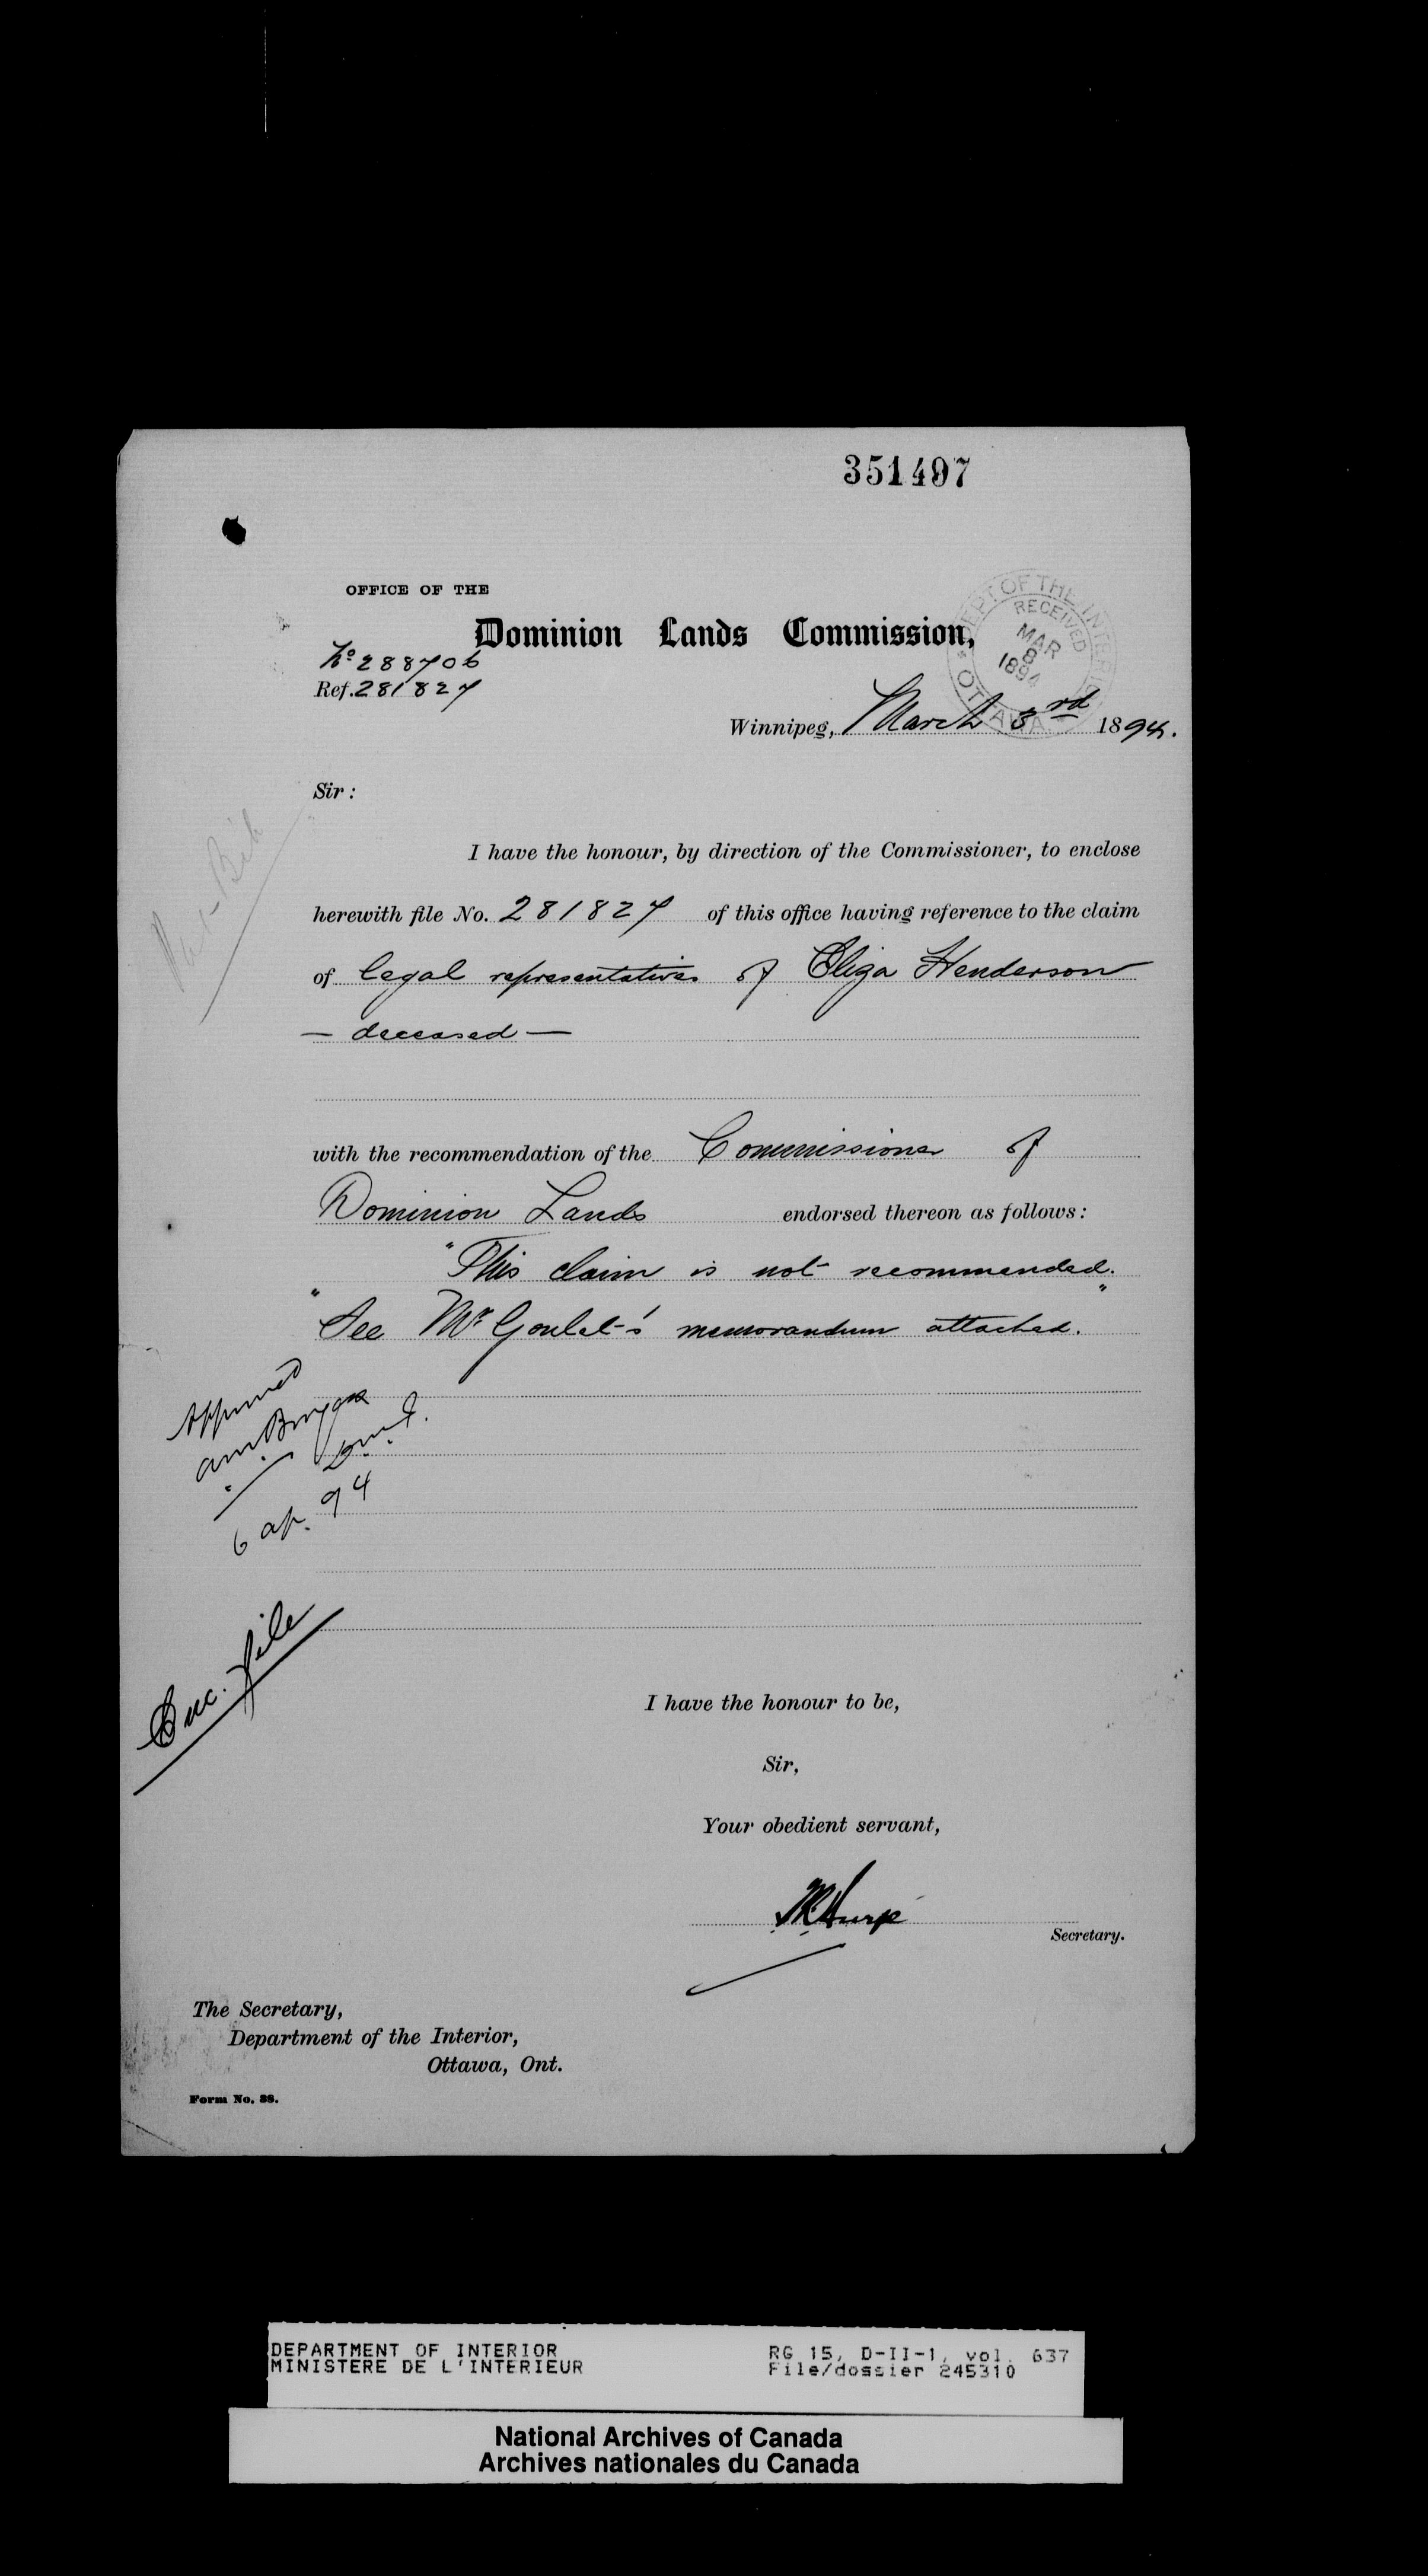 351497
OFFICE OF THE
Dominion Lands Commission,
No 288706
Ref. 281827
DEPT OF THE INTERIOR
RECEIVED
MAR
8
1894
OTTAWA
Winnipeg, March 3rd 1894.
Sir :
I have the honour, by direction of the Commissioner, to enclose
herewith file No. 281827 of this office having reference to the claim
of legal representatives of Eliza Henderson
— deceased —
with the recommendation of the Commissioner of
Dominion Lands endorsed thereon as follows:
"This claim is not recommended.
"See Mr Goulet's memorandum attached."
Approved
6 ap. 94
Enc. file
I have the honour to be,
Sir,
Your obedient servant,
Secretary.
The Secretary,
Department of the Interior,
Ottawa, Ont.
Form No. 38.
DEPARTMENT OF INTERIOR RG 15, D-II-1, vol. 637
MINISTERE DE L'INTERIEUR File/dossier 245310
National Archives of Canada
Archives nationales du Canada